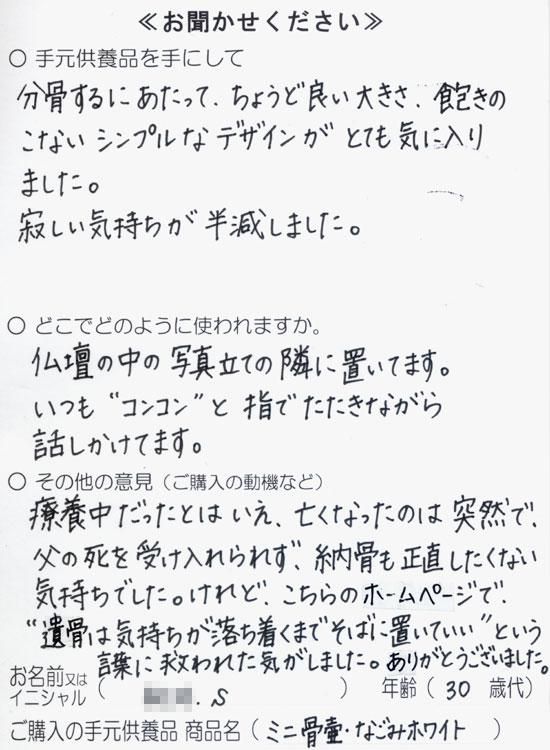 ≪お聞かせください≫
○ 手元供養品を手にして
分骨するにあたって、ちょうど良い大きさ、飽きの
こないシンプルなデザインがとても気に入り
ました。
寂しい気持ちが半減しました。
○ どこでどのように使われますか。
仏壇の中の写真立ての隣に置いてます。
いつも“コンコン”と指でたたきながら
話しかけてます。
○ その他の意見（ご購入の動機など）
療養中だったとはいえ、亡くなったのは突然で、
父の死を受け入れられず、納骨も正直したくない
気持ちでした。けれど、こちらのホームページで、
“遺骨は気持ちが落ち着くまでそばに置いていい”という
言葉に救われた気がしました。ありがとうございました。
お名前又はイニシャル（ . S ） 年齢（ 30 歳代）
ご購入の手元供養品 商品名（ ミニ骨壷・なごみホワイト ）